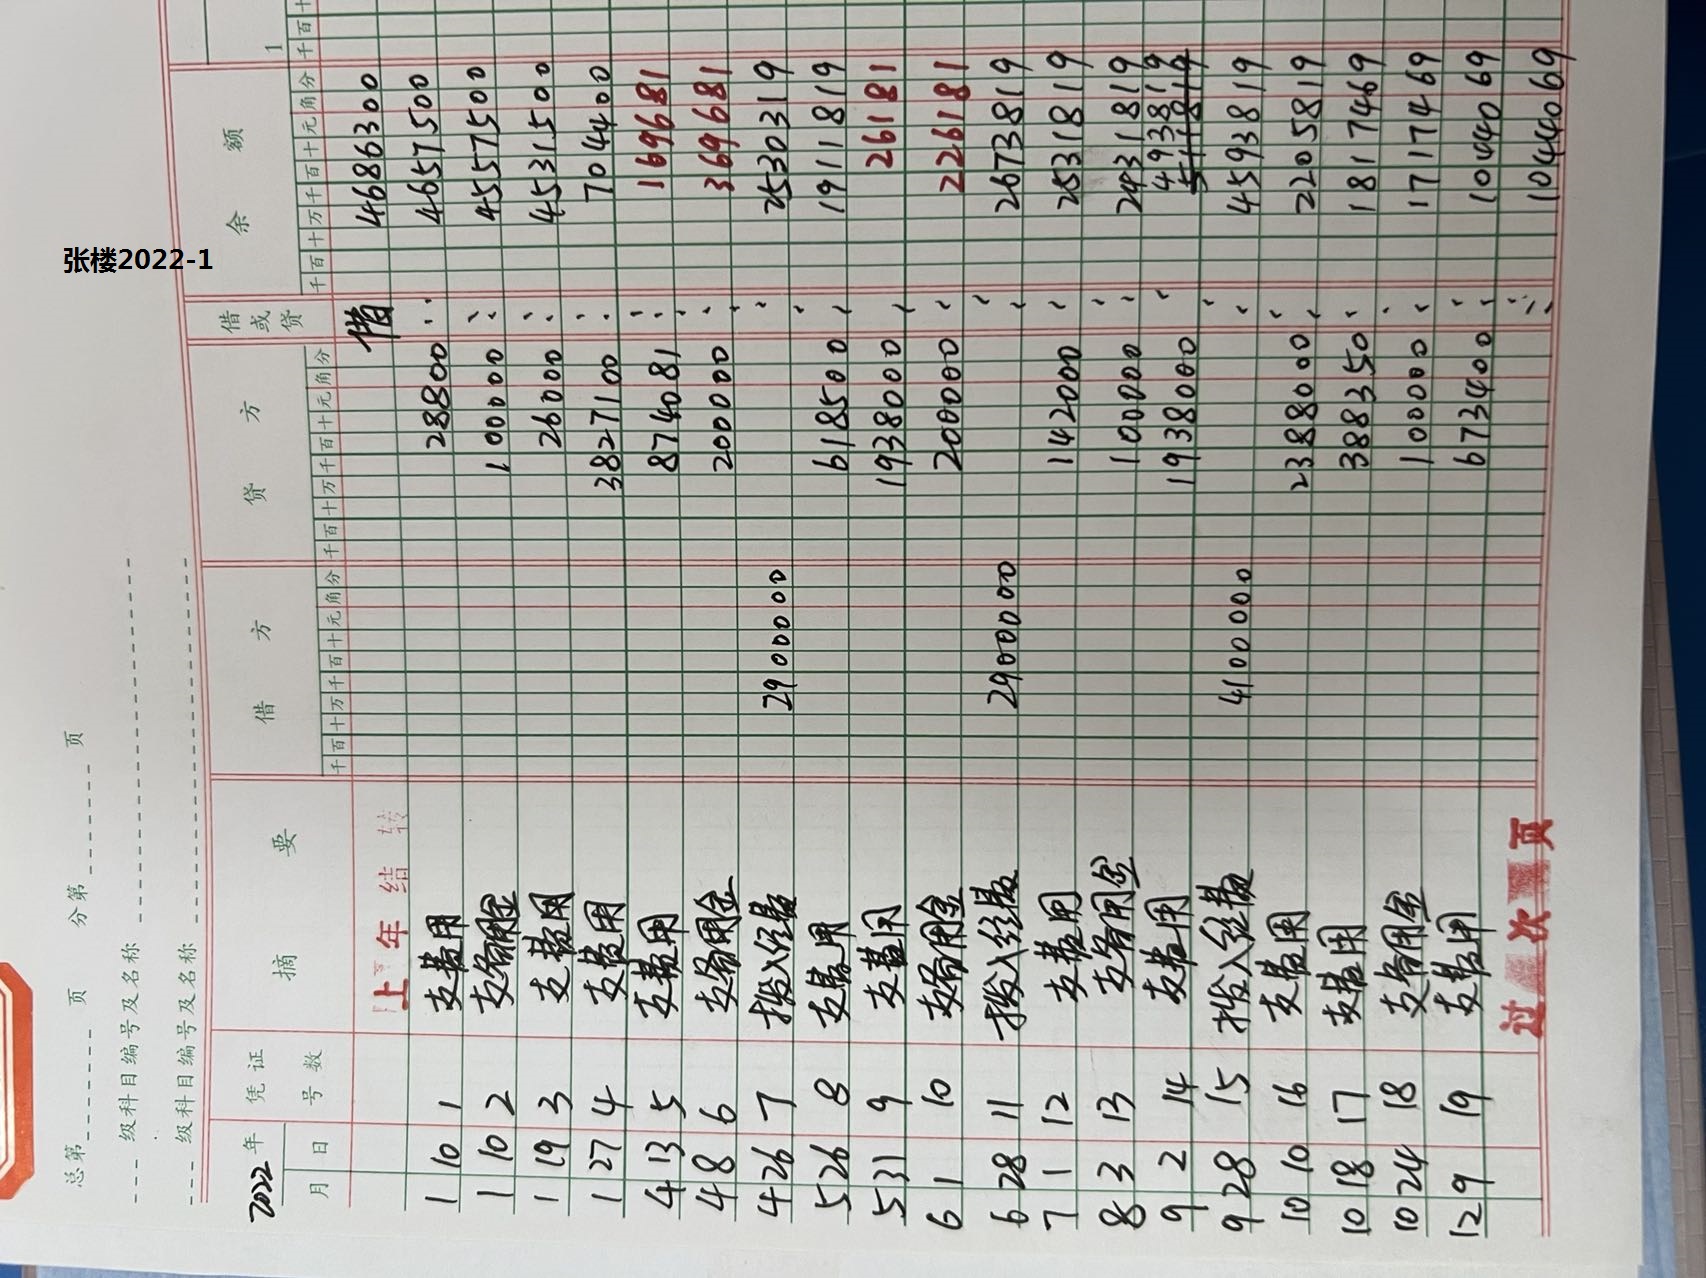 张楼2022-1
总第 页 分第 页
级科目编号及名称
级科目编号及名称
2022年 凭证 摘要 借方 贷方 借或贷 余额 1
月 日 号数 千百十万千百十元角分 千百十万千百十元角分 千百十万千百十元角分
上年结转 借 4686300
1 10 1 支费用 28800 〃 4657500
1 10 2 支备用金 100000 〃 4557500
1 19 3 支费用 26000 〃 4531500
1 27 4 支费用 3827100 〃 704400
4 13 5 支费用 874081 〃 169681
4 8 6 支备用金 200000 〃 369681
4 26 7 拨入经费 2900000 〃 2530319
5 26 8 支费用 618500 〃 1911819
5 31 9 支费用 1938000 〃 26181
6 1 10 支备用金 200000 〃 226181
6 28 11 拨入经费 2900000 〃 2673819
7 1 12 支费用 142000 〃 2531819
8 3 13 支备用金 100000 〃 2431819
9 2 14 支费用 1938000 〃 493819
9 28 15 拨入经费 4100000 〃 4593819
10 10 16 支费用 2388000 〃 2205819
10 18 17 支费用 388350 〃 1817469
10 24 18 支备用金 100000 〃 1717469
12 9 19 支费用 673400 〃 1044069
过次页 〃 1044069